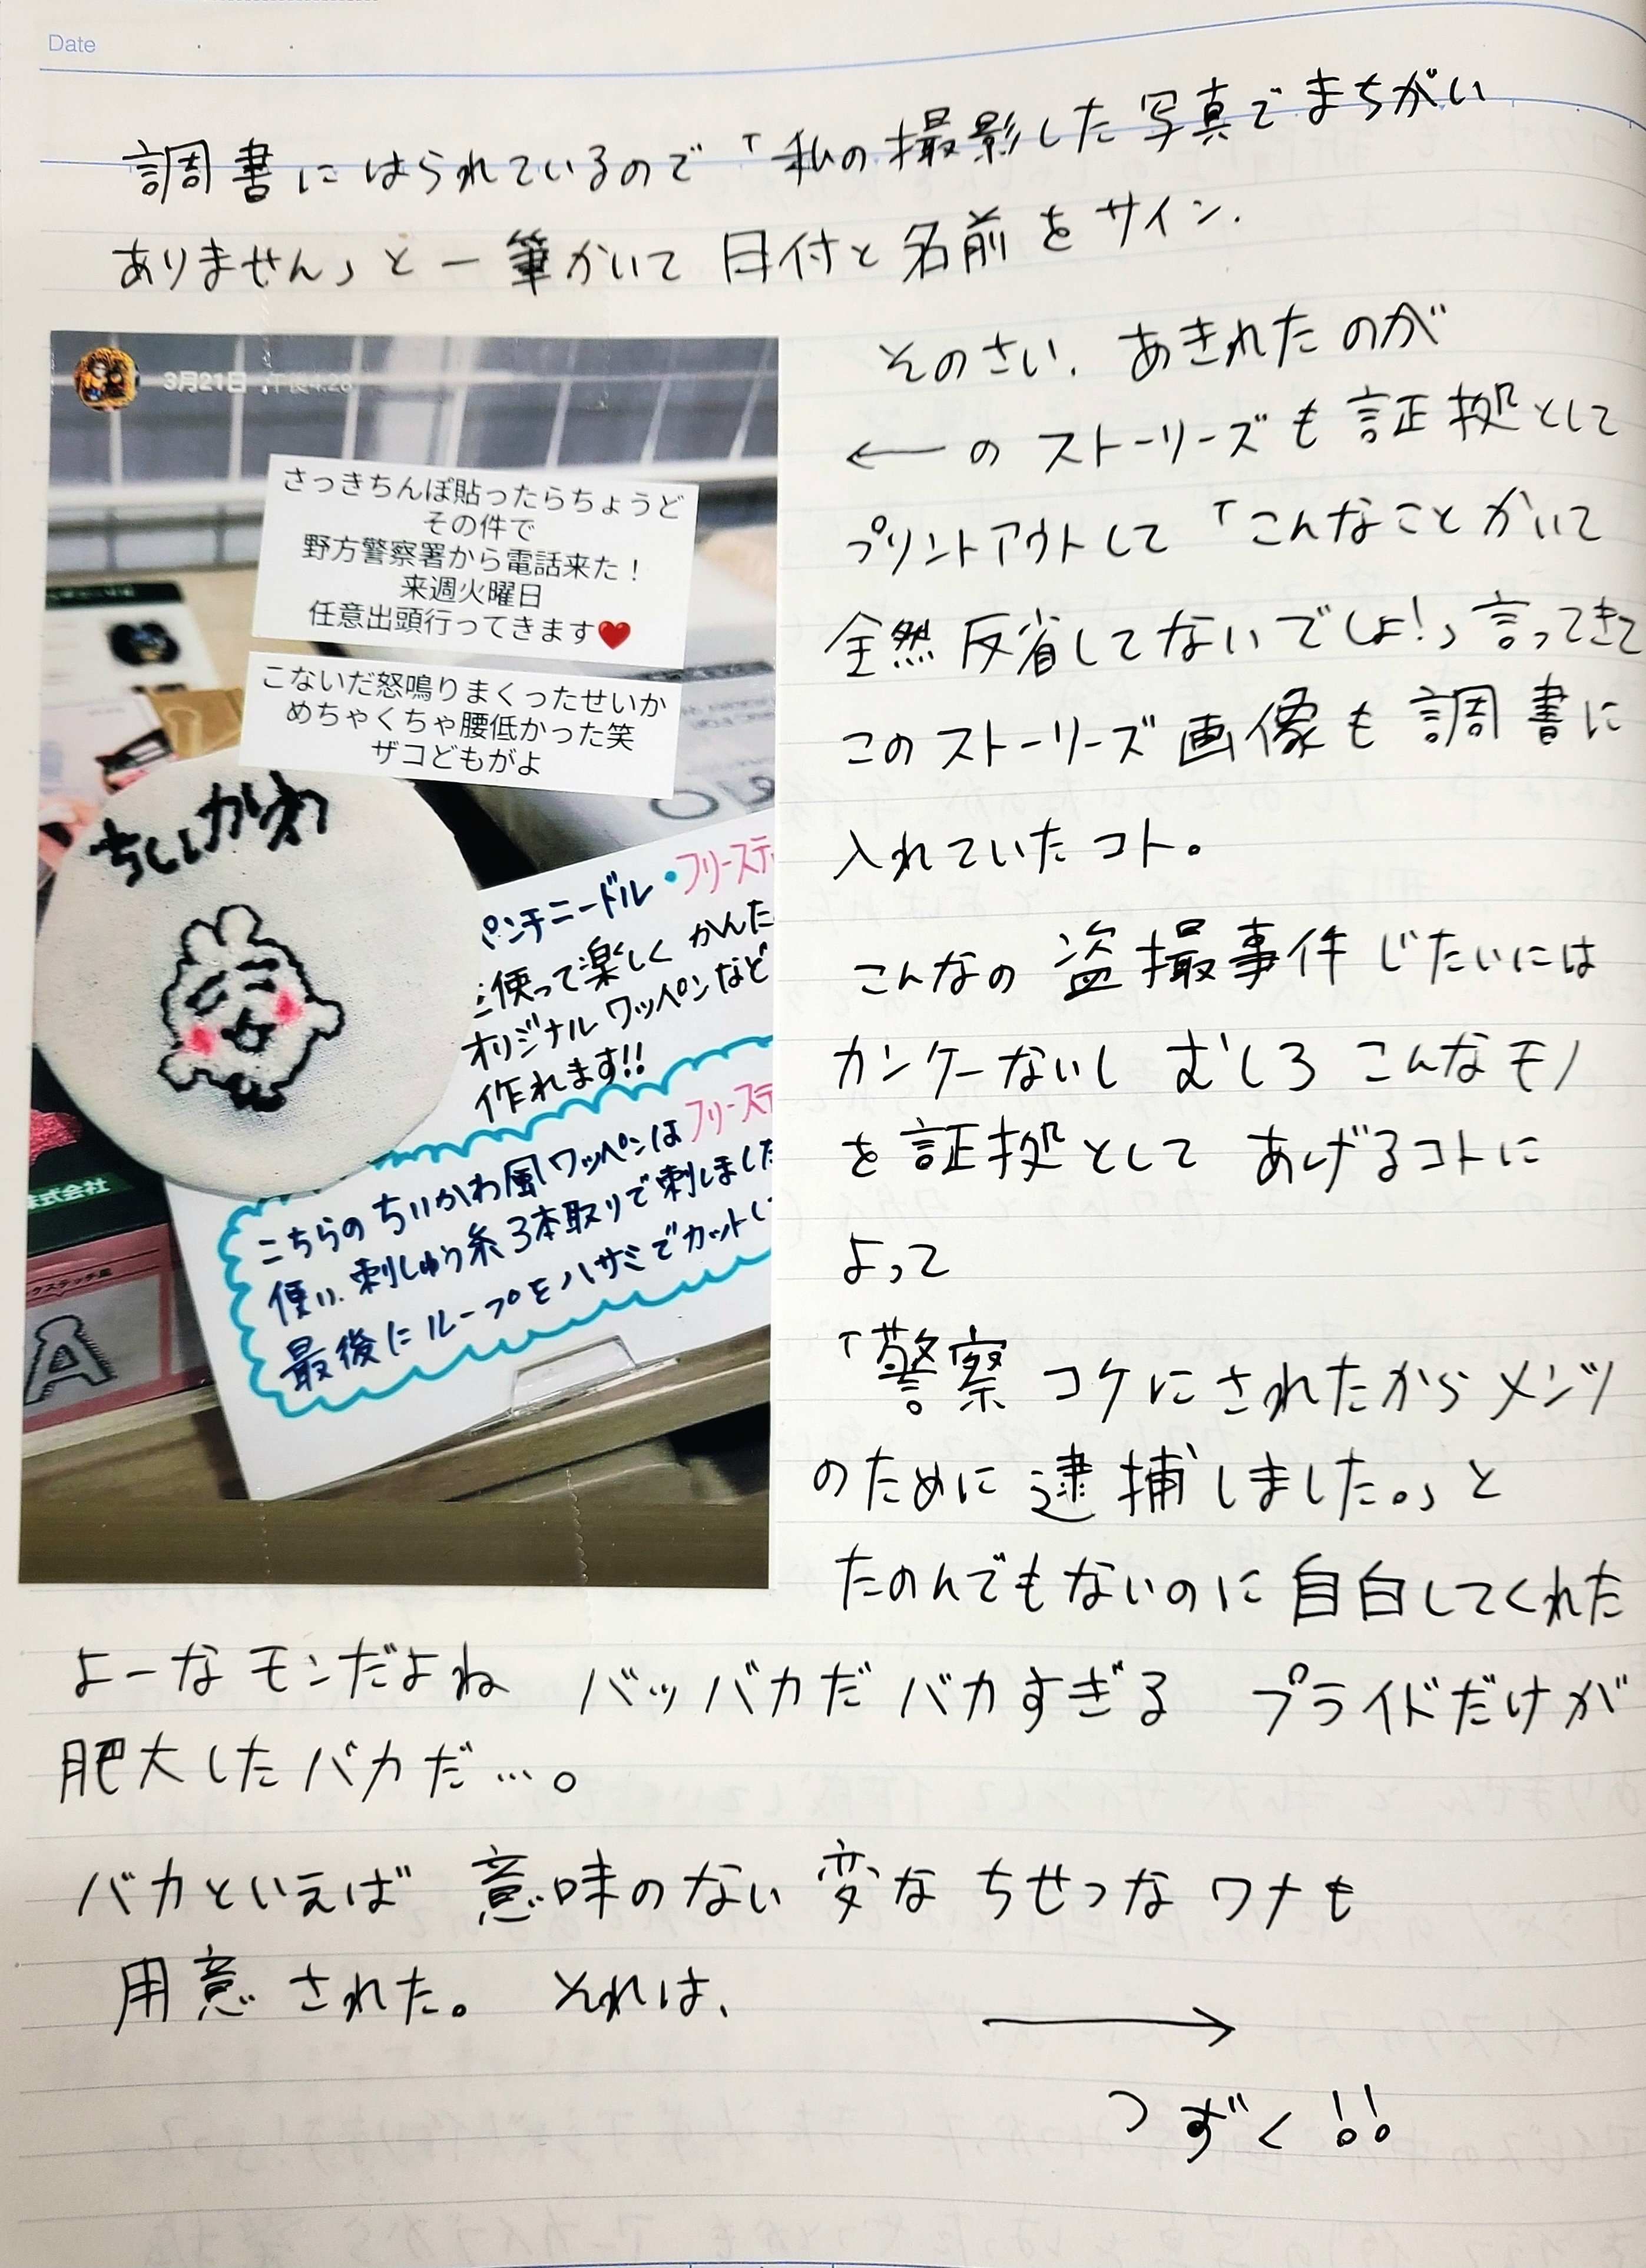 Date
調書にはられているので「私の撮影した写真でまちがい
ありません」と一筆かいて日付と名前をサイン.
3月21日 午後4:26
さっきちんぽ貼ったらちょうど
その件で
野方警察署から電話来た！
来週火曜日
任意出頭行ってきます❤️
こないだ怒鳴りまくったせいか
めちゃくちゃ腰低かった笑
ザコどもがよ
ちいかわ
パンチニードル・フリーステ
使って楽しく かんた
オリジナルワッペンなど
作れます!!
こちらの ちいかわ風ワッペンは フリーステ
使い、刺しゅう糸3本取りで刺しました
最後にループをハサミでカットし
株式会社
A
そのさい、あきれたのが
←のストーリーズも証拠として
プリントアウトして「こんなことかいて
全然反省してないでしょ!」言ってきて
このストーリーズ画像も調書に
入れていたコト。
こんなの盗撮事件じたいには
カンケーないし むしろ こんなモノ
を証拠として あげるコトに
よって
「警察コケにされたからメンツ
のために逮捕しました。」と
たのんでもないのに自白してくれた
よーなモンだよね バッバカだ バカすぎる プライドだけが
肥大したバカだ…。
バカといえば 意味のない変な ちせつな ワナも
用意された。 それは、
→
つずく!!